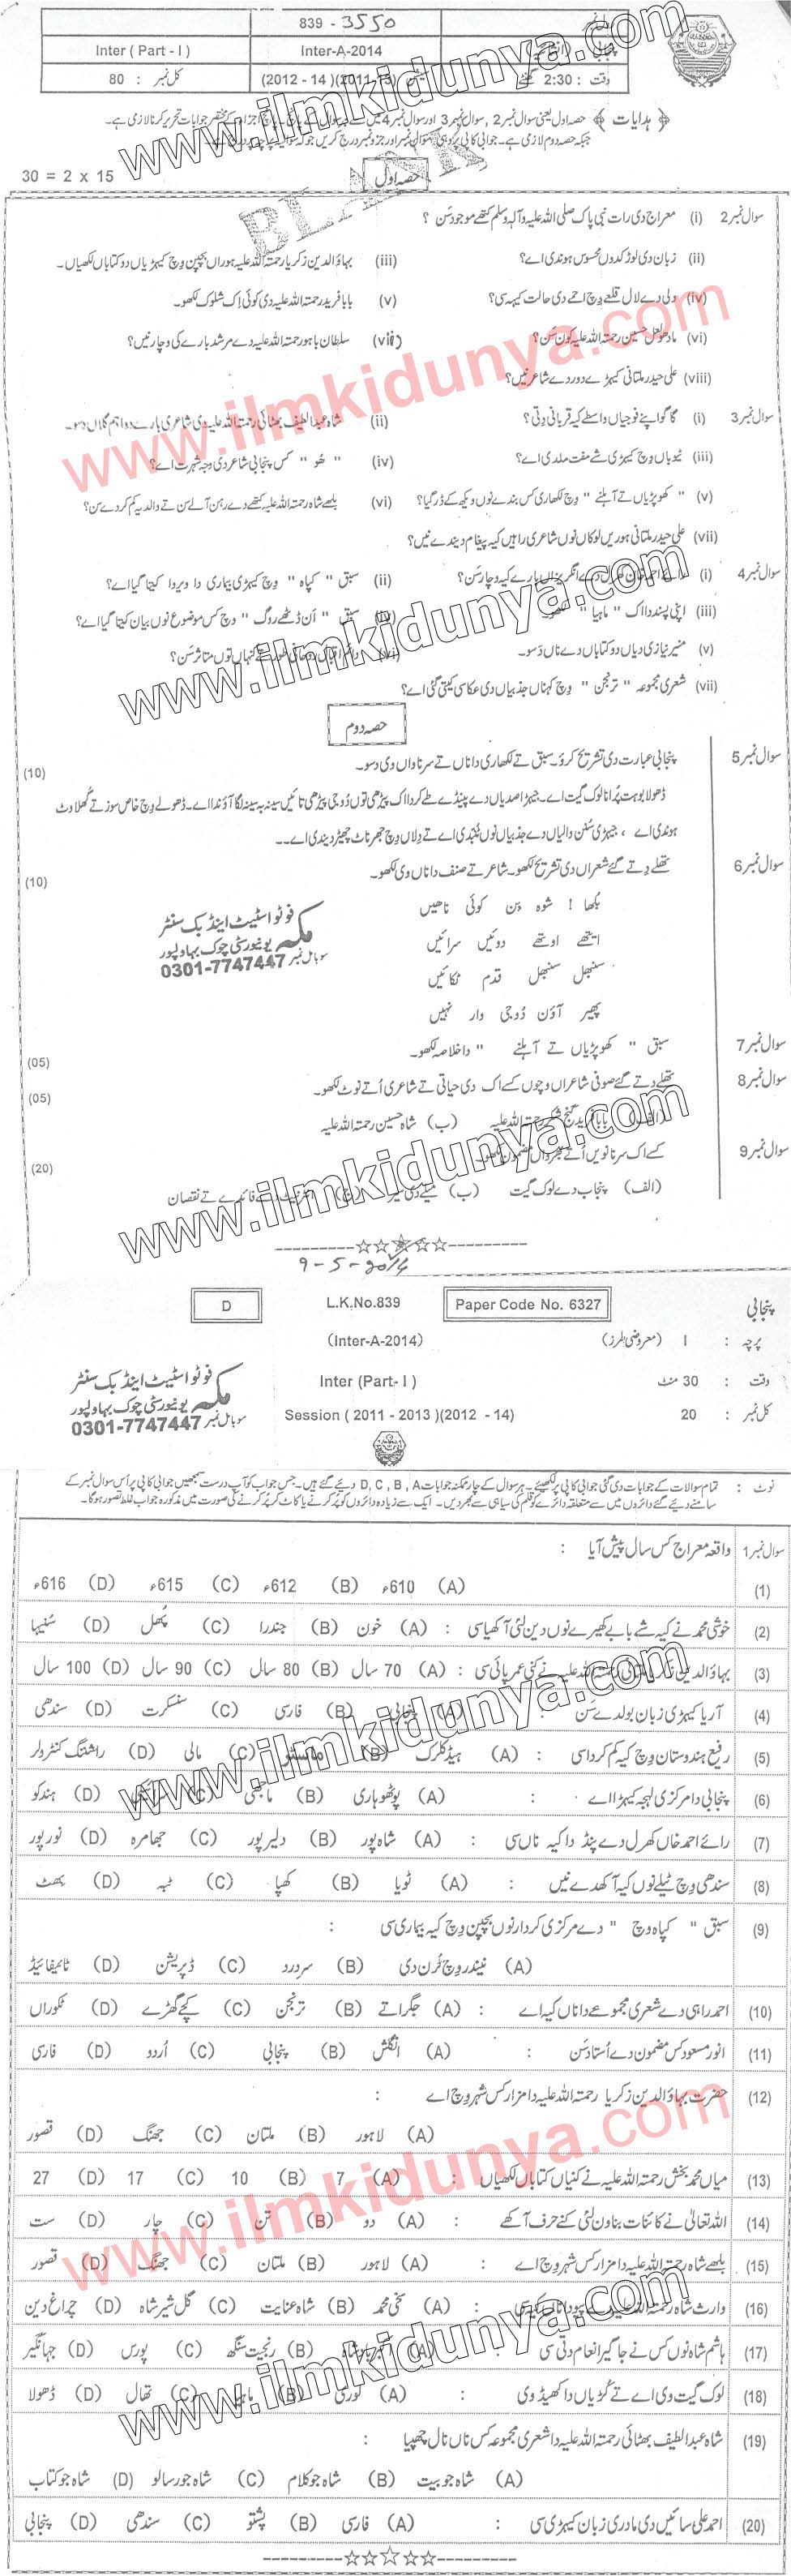 839 - 3550
Inter (Part - I)
Inter-A-2014
پنجابی
(2012 - 14)
وقت : 2:30 گھنٹے
کل نمبر : 80
www.ilmkidunya.com
﴿ ہدایات ﴾
30 = 2 x 15
حصہ اول
BLANK
سوال نمبر 2 (i) معراج دی رات نبی پاک صلی اللہ علیہ وآلہ وسلم کتھے موجود سَن ؟
(ii) زبان دی لوڑ کدوں محسوس ہوندی اے؟
(iii) بہاؤالدین زکریا رحمتہ اللہ علیہ ہوراں بچپن وچ کیہڑیاں دو کتاباں لکھیاں۔
(iv) دلی دے لال قلعے وچ احمے دی حالت کیہہ سی؟
(v) بابا فرید رحمتہ اللہ علیہ دی کوئی اِک شلوک لکھو۔
(vi) مادھولعل حسین رحمتہ اللہ علیہ کون سَن؟
(vii) سلطان باہو رحمتہ اللہ علیہ دے مرشد بارے کی وچار نیں؟
(viii) علی حیدر ملتانی کیہڑے دور دے شاعر نیں؟
www.ilmkidunya.com
سوال نمبر 3 (i) گاگو اپنے فوجیاں واسطے کیہ قربانی دِتی؟
(ii) شاہ عبداللطیف بھٹائی رحمتہ اللہ علیہ دی شاعری بارے دو اہم گلاں دسو۔
(iii) ٹیوباں وچ کیہڑی شے مفت ملدی اے؟
(iv) " ھُو " کس پنجابی شاعر دی وجہ شہرت اے؟
(v) " کھوپڑیاں تے آہلنے " وچ لکھاری کس بندے نوں ویکھ کے ڈر گیا؟
(vi) بلھے شاہ رحمتہ اللہ علیہ کتھے دے رہن آلے سن تے والد یہ کم کردے سن؟
(vii) علی حیدر ملتانی ہوریں لوکاں نوں شاعری راہیں کیہ پیغام دیندے نیں؟
سوال نمبر 4 (i) رائے احمد خان کھرل دے انگریزاں بارے کیہ وچار سَن؟
(ii) سبق " کپاہ " وچ کیہڑی بیماری دا ویروا کیتا گیا اے؟
(iii) اپنی پسند دا اک " ماہیا " لکھو۔
(iv) سبق " اَن ڈٹھے روگ " وچ کس موضوع نوں بیان کیتا گیا اے؟
(v) منیر نیازی دیاں دو کتاباں دے ناں دَسو۔
(vii) شعری مجموعہ " ترنجن " وچ کہناں جذبیاں دی عکاسی کیتی گئی اے؟
www.ilmkidunya.com
حصہ دوم
سوال نمبر 5 پنجابی عبارت دی تشریح کرو۔ سبق تے لکھاری دا ناں تے سرناواں وی دسو۔
(10)
ڈھولا بوہت پُرانا لوک گیت اے۔ جیہڑا صدیاں دے پینڈے طے کردا اک پیڑھی توں دُوجی پیڑھی تائیں سینہ بہ سینہ لگا آؤندا اے۔ ڈھولے وچ خاص سوز تے گھلاوٹ
ہوندی اے ، جیہڑی سُنن والیاں دے جذبیاں نوں ٹُنبدی اے تے دِلاں وچ جھرناٹ چھیڑ دیندی اے۔۔
سوال نمبر 6 تھلے دِتے گئے شعراں دی تشریح لکھو۔ شاعر تے صنف دا ناں وی لکھو۔
(10)
بُلھا ! شوہ بِن کوئی ناھیں
ایتھے اوتھے دوئیں سرائیں
سنبھل سنبھل قدم ٹکائیں
پھیر آؤن دُوجی وار نہیں
مکہ فوٹو اسٹیٹ اینڈ بک سنٹر
یونیورسٹی چوک بہاولپور
موبائل نمبر 0301-7747447
سوال نمبر 7 سبق " کھوپڑیاں تے آہلنے " دا خلاصہ لکھو۔
(05)
سوال نمبر 8 تھلے دتے گئے صوفی شاعراں وچوں کسے اک دی حیاتی تے شاعری اُتے نوٹ لکھو۔
(05)
(الف) بابا فرید گنج شکر رحمتہ اللہ علیہ (ب) شاہ حسین رحمتہ اللہ علیہ
سوال نمبر 9 کسے اک سرنانویں اُتے بھرواں مضمون لکھو۔
(20)
(الف) پنجاب دے لوک گیت (ب) میلے دی سیر (ج) انٹرنیٹ دے فائدے تے نقصان
www.ilmkidunya.com
9-5-2014
پنجابی
Paper Code No. 6327
L.K.No.839
D
پرچہ : I (معروضی طرز)
(Inter-A-2014)
وقت : 30 منٹ
Inter (Part- I )
کل نمبر : 20
Session ( 2011 - 2013 )(2012 - 14)
مکہ فوٹو اسٹیٹ اینڈ بک سنٹر
یونیورسٹی چوک بہاولپور
موبائل نمبر 0301-7747447
نوٹ : تمام سوالات کے جوابات دی گئی جوابی کاپی پر لکھیئے۔ ہر سوال کے چار ممکنہ جوابات D, C, B, A دیئے گئے ہیں۔ جس جواب کو آپ درست سمجھیں جوابی کاپی پر اُس سوال نمبر کے
سامنے دیئے گئے دائروں میں سے متعلقہ دائرے کو قلم کی سیاہی سے بھر دیں۔ ایک سے زیادہ دائروں کو پُر کرنے یا کاٹ کر پُر کرنے کی صورت میں مذکورہ جواب غلط تصور ہوگا۔
سوال نمبر 1 واقعہ معراج کس سال پیش آیا :
(1) (A) 610ء (B) 612ء (C) 615ء (D) 616ء
(2) خوشی محمد نے کیہ شے بابے کھیرے نوں دین لئی آکھیا سی : (A) خون (B) جندرا (C) پُھل (D) سُنیہا
(3) بہاؤالدین زکریا ملتانی رحمتہ اللہ علیہ نے کنی عمر پائی سی : (A) 70 سال (B) 80 سال (C) 90 سال (D) 100 سال
(4) آریا کیہڑی زبان بولدے سَن : (A) پنجابی (B) فارسی (C) سنسکرت (D) سندھی
(5) رفیع ہندوستان وچ کیہ کم کردا سی : (A) ہیڈ کلرک (B) ماسٹر (C) مالی (D) راشننگ کنٹرولر
(6) پنجابی دا مرکزی لہجہ کیہڑا اے : (A) پوٹھوہاری (B) ماجھی (C) سرائیکی (D) ہندکو
(7) رائے احمد خاں کھرل دے پنڈ دا کیہ ناں سی : (A) شاہ پور (B) دلیر پور (C) جھامرہ (D) نور پور
(8) سندھی وچ ٹیلے نوں کیہ آکھدے نیں : (A) ٹویا (B) کھپا (C) ٹبہ (D) بھٹ
(9) سبق " کپاہ وچ " دے مرکزی کردار نوں بچپن وچ کیہ بیماری سی :
(A) نیندر وچ ٹُرن دی (B) سر درد (C) ڈپریشن (D) ٹائیفائیڈ
(10) احمد راہی دے شعری مجموعے دا ناں کیہ اے : (A) جگراتے (B) ترنجن (C) کچے گھڑے (D) ٹکوراں
(11) انور مسعود کس مضمون دے اُستاد سَن : (A) انگلش (B) پنجابی (C) اُردو (D) فارسی
(12) حضرت بہاؤالدین زکریا رحمتہ اللہ علیہ دا مزار کس شہر وچ اے :
(A) لاہور (B) ملتان (C) جھنگ (D) قصور
(13) میاں محمد بخش رحمتہ اللہ علیہ نے کنیاں کتاباں لکھیاں : (A) 7 (B) 10 (C) 17 (D) 27
(14) اللہ تعالیٰ نے کائنات بناون لئی کنے حرف آکھے : (A) دو (B) تن (C) چار (D) ست
(15) بلھے شاہ رحمتہ اللہ علیہ دا مزار کس شہر وچ اے : (A) لاہور (B) ملتان (C) جھنگ (D) قصور
(16) وارث شاہ رحمتہ اللہ علیہ دے پیو دا ناں کیہ سی : (A) سخی محمد (B) شاہ عنایت (C) گل شیر شاہ (D) چراغ دین
(17) ہاشم شاہ نوں کس نے جاگیر انعام دتی سی : (A) اکبر بادشاہ (B) رنجیت سنگھ (C) پورس (D) جہانگیر
(18) لوک گیت وی اے تے کُڑیاں دا کھیڈ وی : (A) لوری (B) ماہیا (C) تھال (D) ڈھولا
(19) شاہ عبداللطیف بھٹائی رحمتہ اللہ علیہ دا شعری مجموعہ کس ناں نال چھپیا :
(A) شاہ جو بیت (B) شاہ جو کلام (C) شاہ جو رسالو (D) شاہ جو کتاب
(20) احمد علی سائیں دی مادری زبان کیہڑی سی : (A) فارسی (B) پشتو (C) سندھی (D) پنجابی
www.ilmkidunya.com
www.ilmkidunya.com
www.ilmkidunya.com